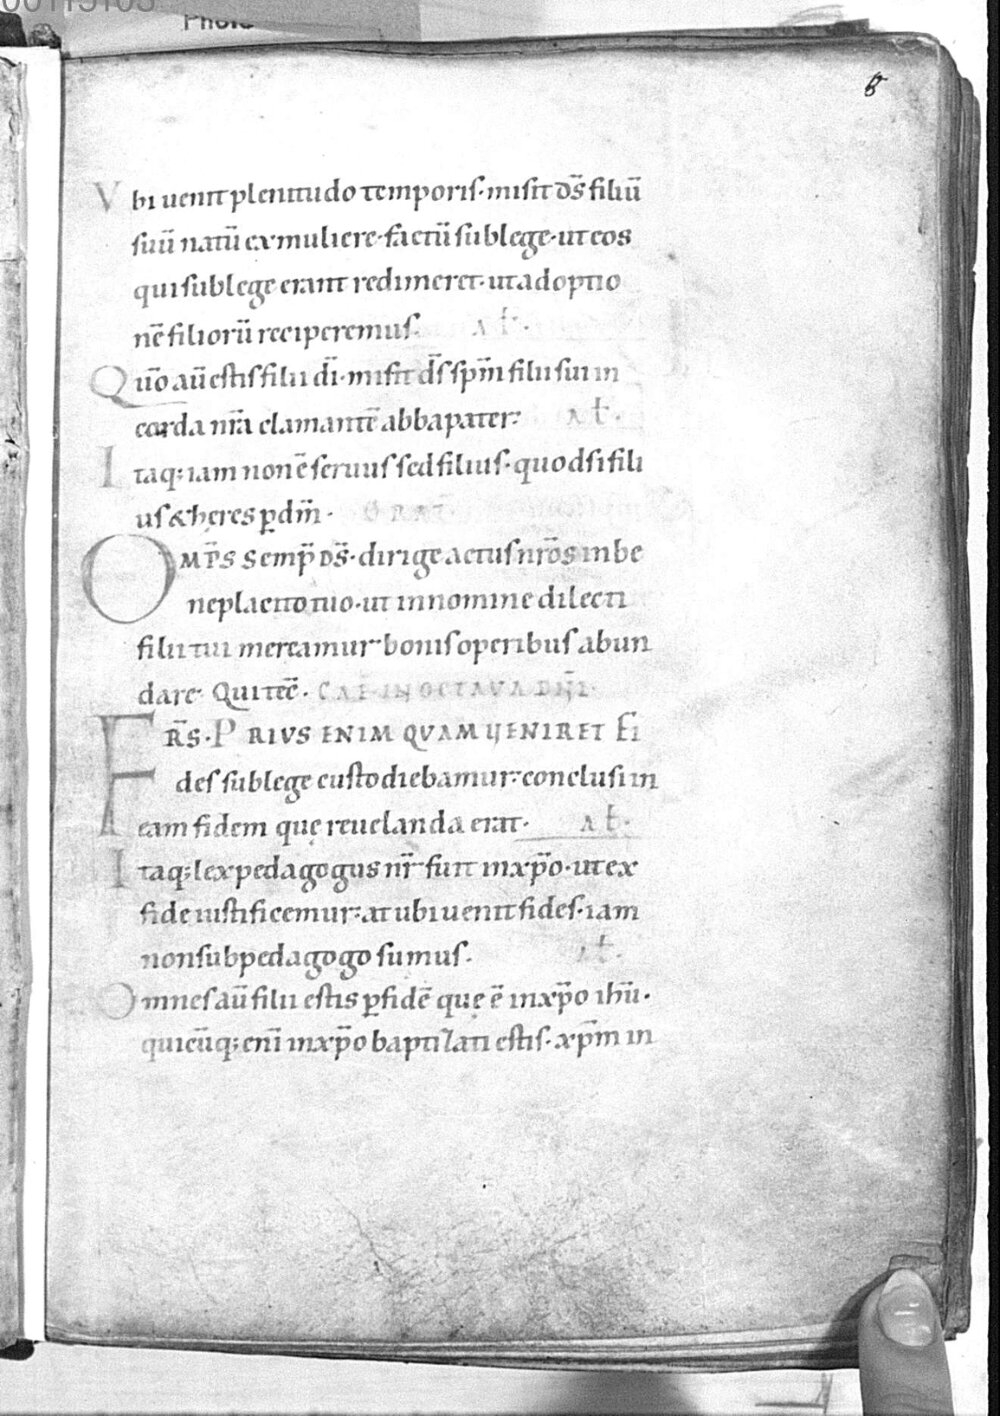 8
Vbi uenit plenitudo temporis· misit d̄s filiū
suū natū ex muliere· factū sub lege· ut eos
qui sub lege erant redimeret· ut adoptio
nē filiorū reciperemus. A ł·
Quō aū estis filii dī· misit d̄s sp̄m filii sui in
corda nr̄a clamantē abba pater: A ł·
Itaq; iam non ē seruus sed filius· quod si fili
us & hęres p dm̄· ORAT̄
OMP̄S semp̄ DS̄· dirige actus nr̄os in be
neplacito tuo· ut in nomine dilecti
filii tui mereamur bonis operibus abun
dare· Qui tec̄· CAP̄· IN OCTAVA DN̄I·
FR̄S· PRIVS ENIM QVAM VENIRET FI
des sub lege custodiebamur: conclusi in
eam fidem quę reuelanda erat· A ł·
Itaq; lex pedagogus nr̄ fuit in xp̄o· ut ex
fide iustificemur: at ubi uenit fides· iam
non sub pedagogo sumus. A ł·
Omnes aū filii estis p fidē quę ē in xp̄o ihū·
quicūq; enī in xp̄o baptizati estis· xp̄m in